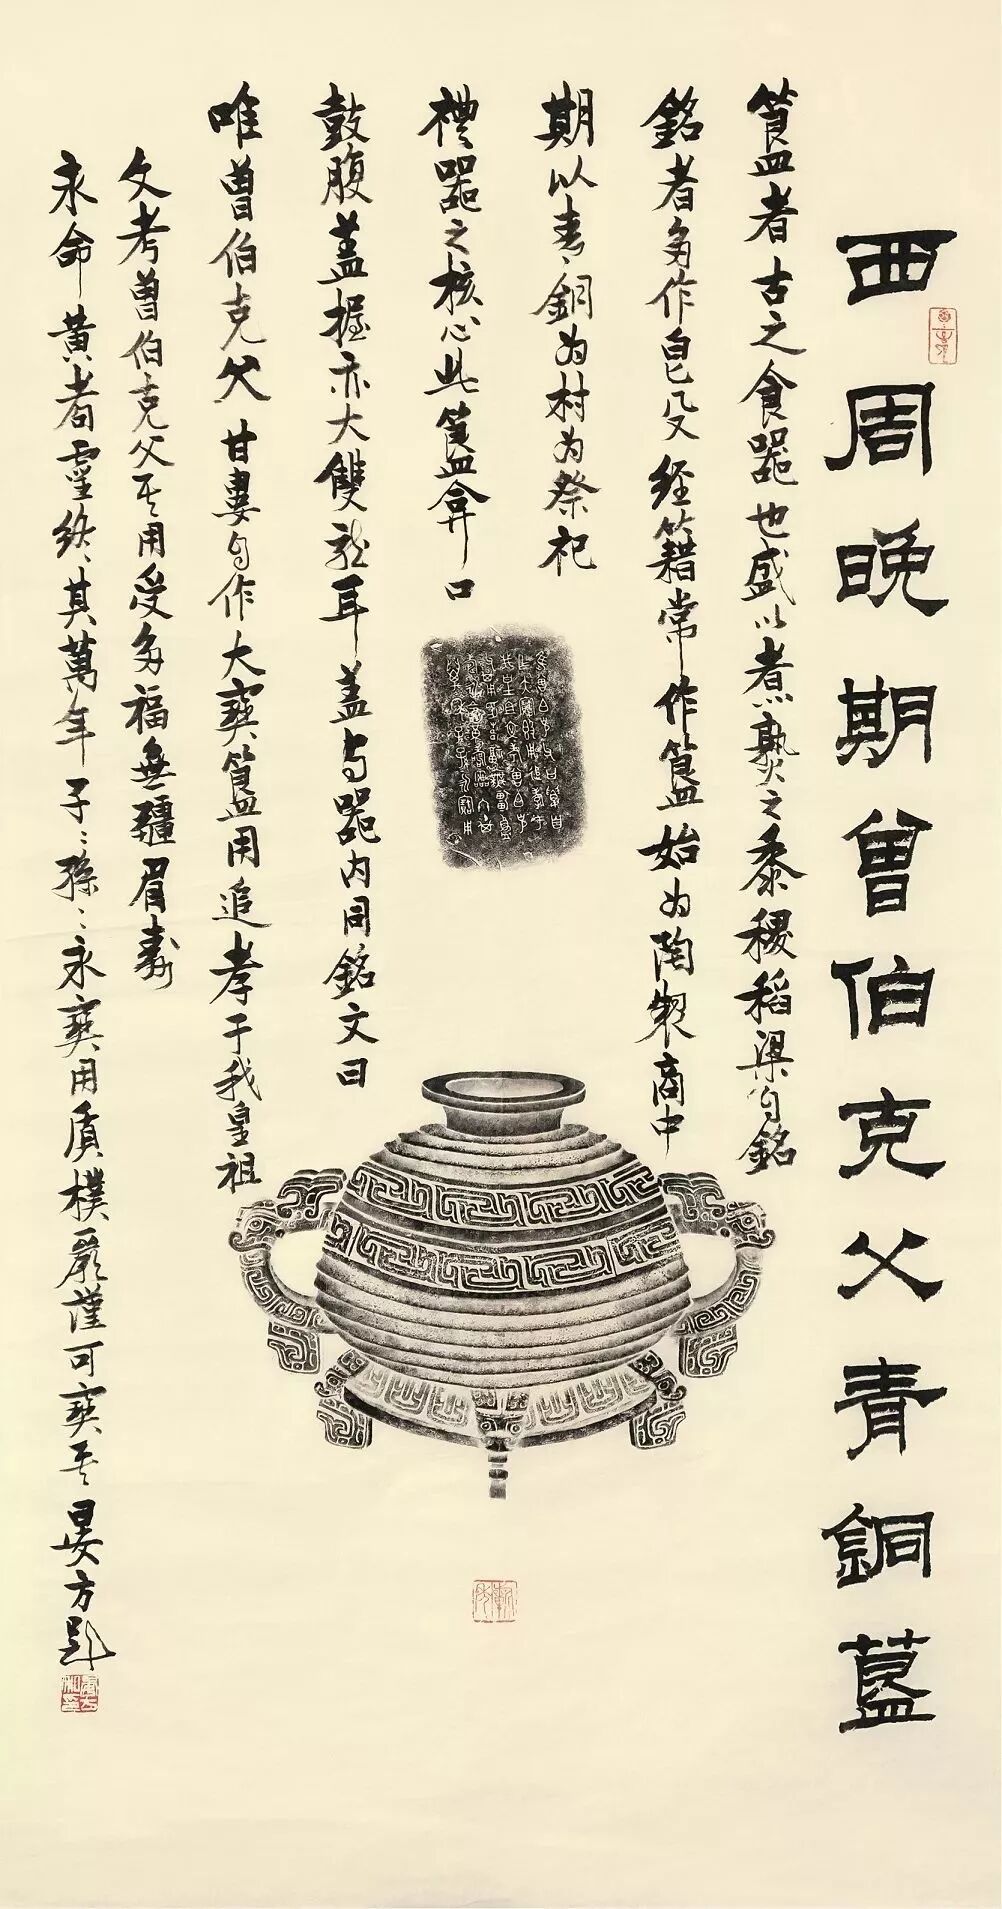 西周晚期曾伯克父青銅簋
簋者古之食器也盛以煮熟之黍稷稻粱自銘
銘者多作皀殳經籍常作簋始為陶製商中
期以青銅為材為祭祀
禮器之核心此簋弇口
鼓腹蓋握亦大雙龍耳蓋与器内同銘文曰
唯曾伯克父甘婁自作大寶簋用追孝于我皇祖
文考曾伯克父其用受多福無疆眉壽
永命黃耇霝終其萬年子〻孫〻永寶用質樸嚴謹可寶其晏方題